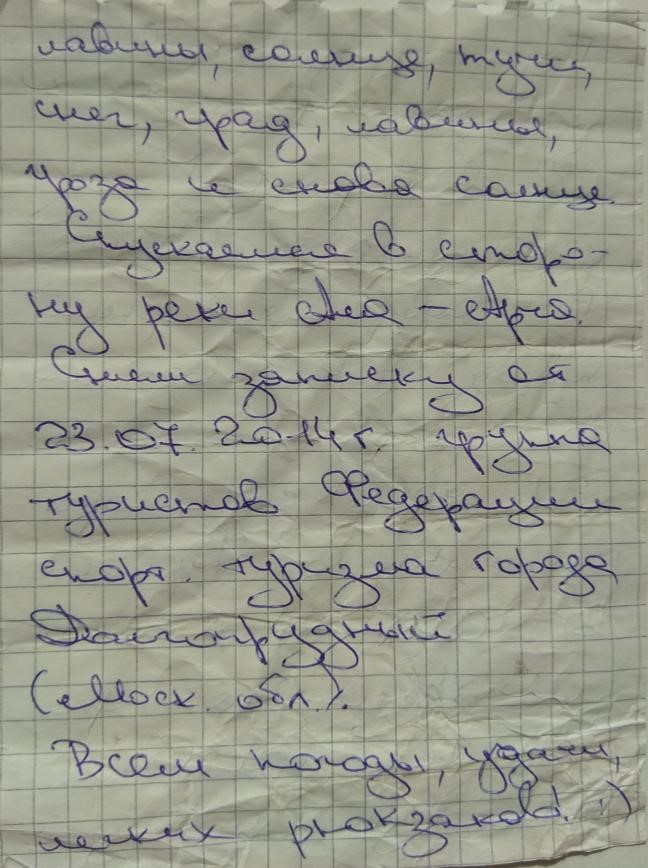 лавины, солнце, тучи,
снег, град, лавины,
гроза и снова солнце.
Спускаемся в сторо-
ну реки Ала-Арча.
Сняли записку от
23.07.2014г. группа
туристов Федерации
спорт. туризма города
Долгопрудный
(Моск. обл.).
Всем погоды, удачи,
легких рюкзаков! :)